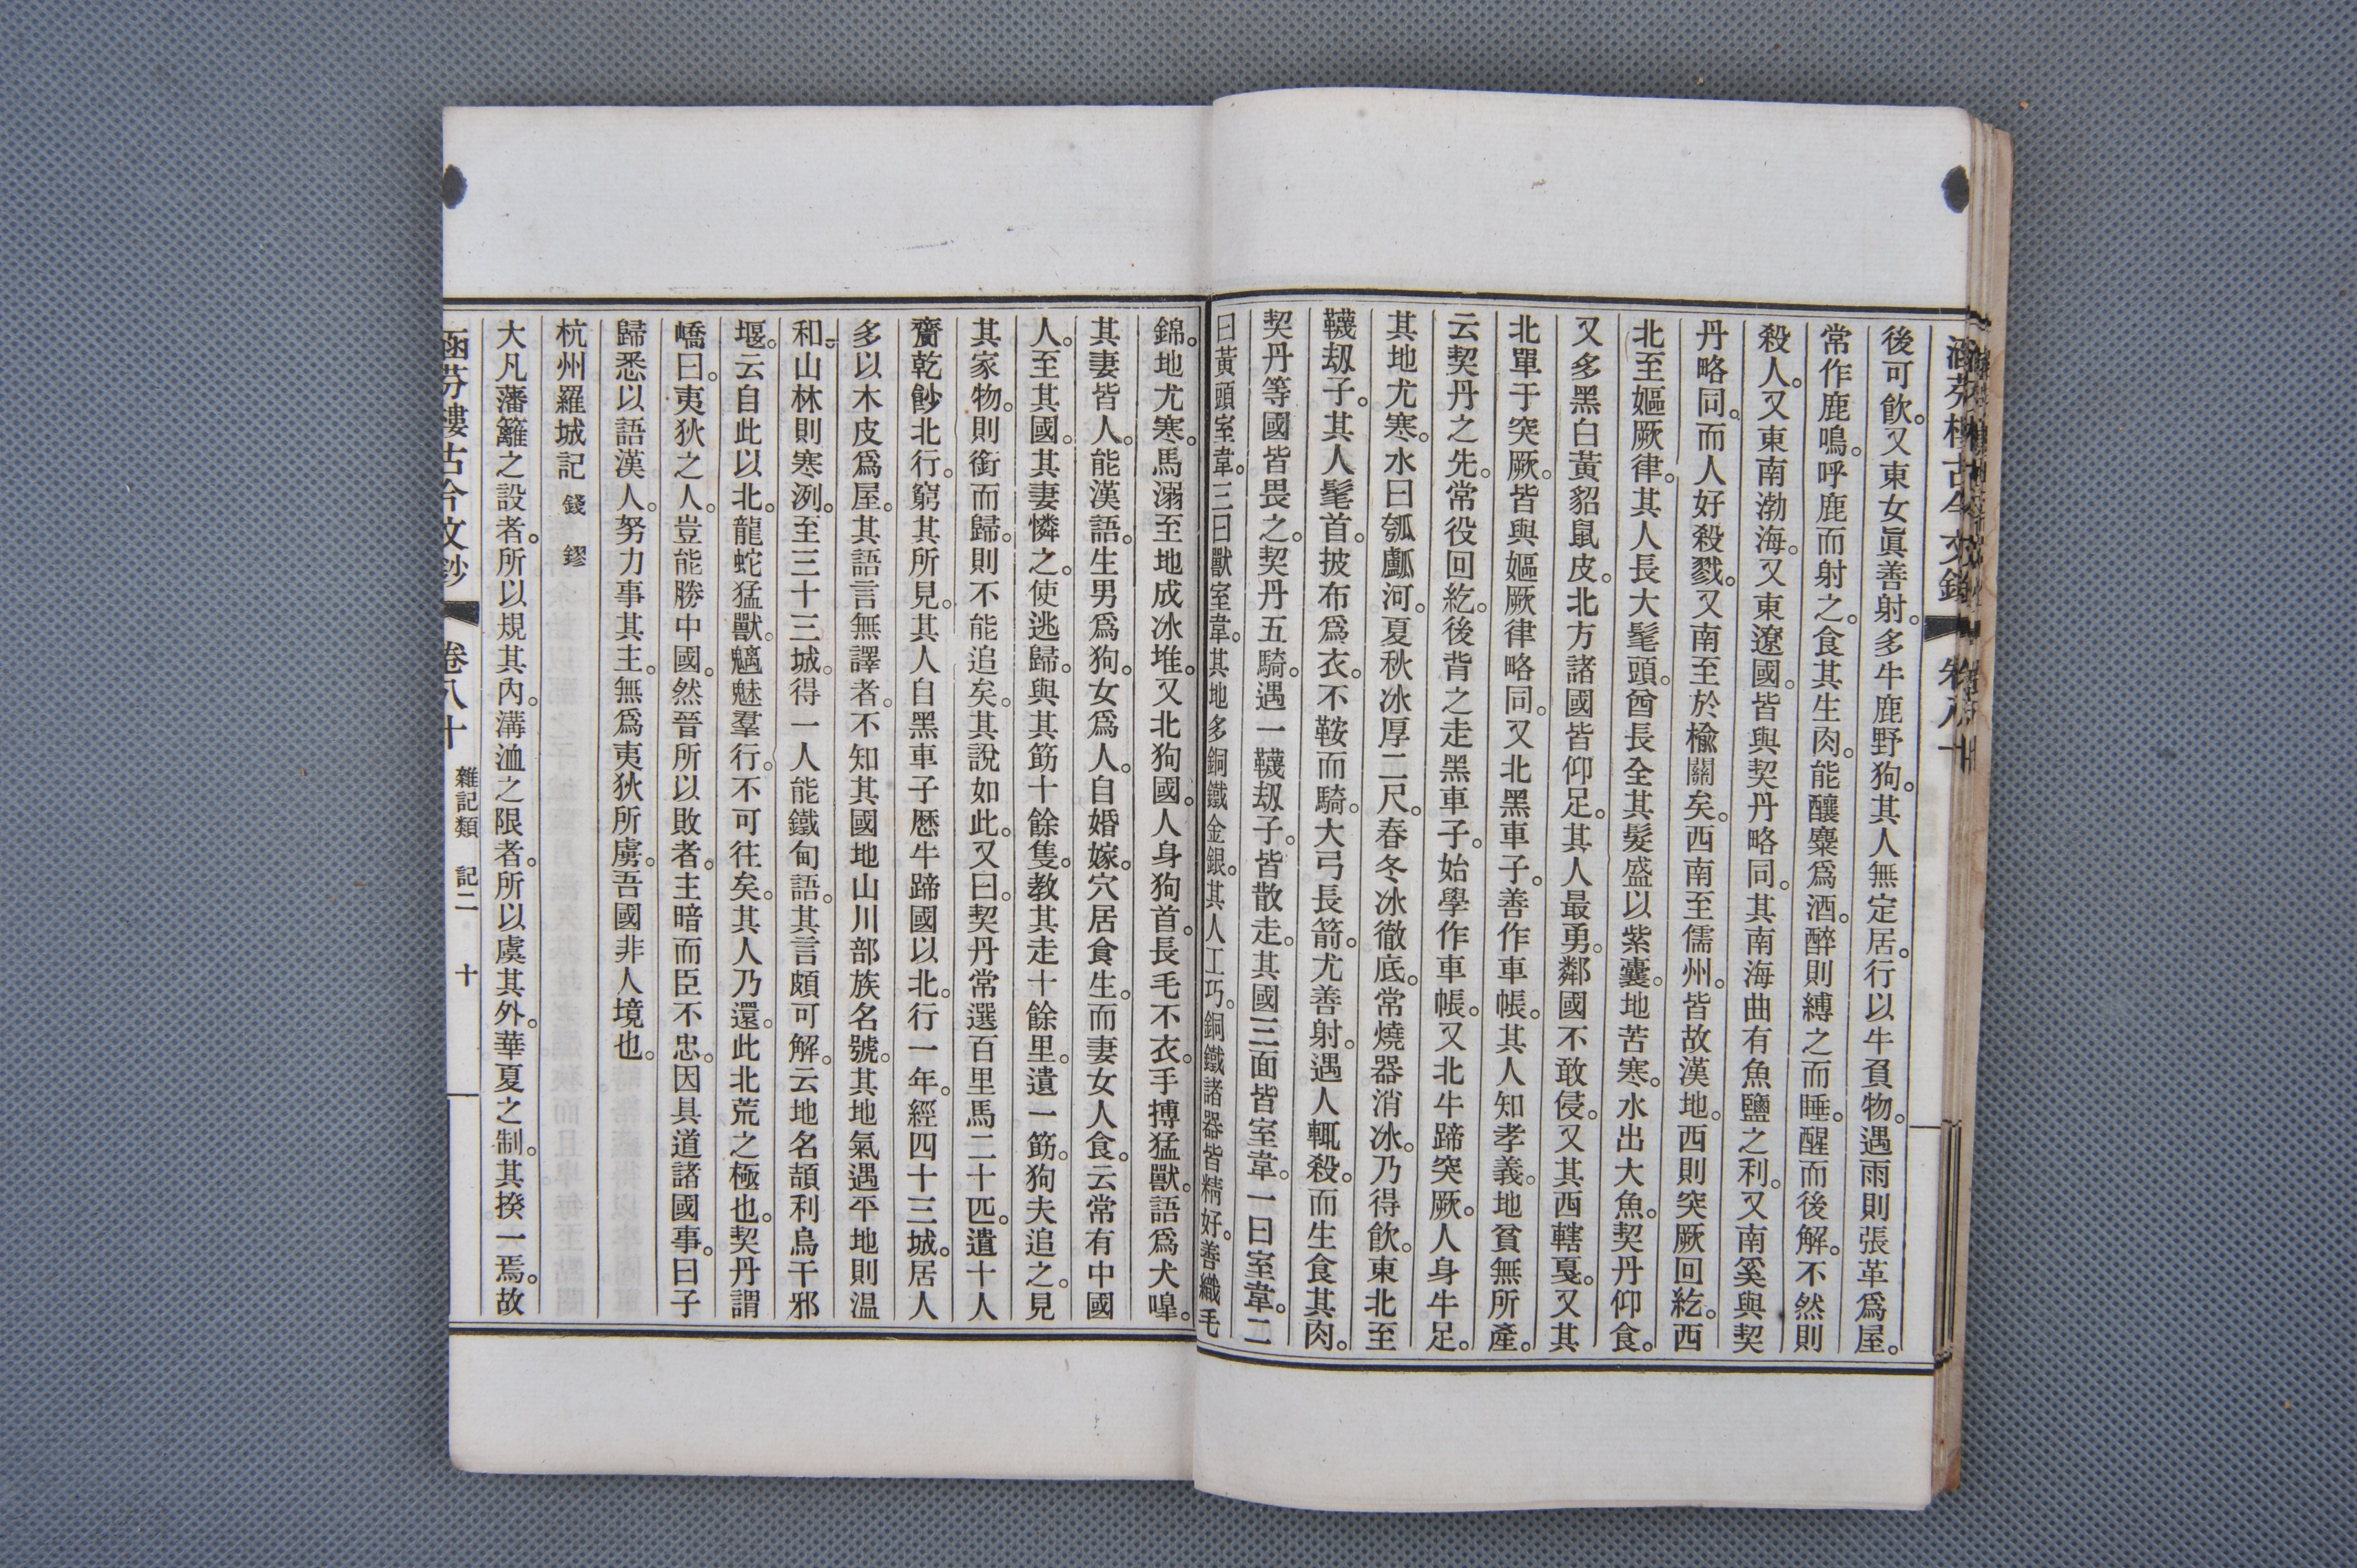 後可飲。又東女眞善射。多牛鹿野狗。其人無定居。行以牛負物。遇雨則張革爲屋。
常作鹿鳴。呼鹿而射之。食其生肉。能釀麋爲酒。醉則縛之而睡。醒而後解。不然則
殺人。又東南渤海。又東遼國。皆與契丹略同。其南海曲有魚鹽之利。又南奚與契
丹略同。而人好殺戮。又南至於楡關矣。西南至儒州。皆故漢地。西則突厥回紇。西
北至嫗厥律。其人長大髦頭。酋長全其髮盛以紫囊。地苦寒。水出大魚。契丹仰食。
又多黑白黃貂鼠皮。北方諸國皆仰足。其人最勇。鄰國不敢侵。又其西轄戛。又其
北單于突厥。皆與嫗厥律略同。又北黑車子。善作車帳。其人知孝義。地貧無所產。
云契丹之先。常役回紇。後背之走黑車子。始學作車帳。又北牛蹄突厥。人身牛足。
其地尤寒。水曰瓠𤬛河。夏秋冰厚二尺。春冬冰徹底。常燒器消冰。乃得飲。東北至
韈刼子。其人髦首。披布爲衣。不鞍而騎。大弓長箭。尤善射。遇人輒殺。而生食其肉。
契丹等國皆畏之。契丹五騎。遇一韈刼子。皆散走。其國三面皆室韋。一曰室韋。二
曰黃頭室韋。三曰獸室韋。其地多銅鐵金銀。其人工巧。銅鐵諸器皆精好。善織毛
錦。地尤寒。馬溺至地成冰堆。又北狗國。人身狗首。長毛不衣。手搏猛獸。語爲犬嘷。
其妻皆人。能漢語。生男爲狗。女爲人。自婚嫁。穴居食生。而妻女人食。云常有中國
人。至其國。其妻憐之。使逃歸。與其筯十餘隻。教其走十餘里。遺一筯。狗夫追之。見
其家物。則銜而歸。則不能追矣。其說如此。又曰。契丹常選百里馬二十匹。遣十人
齎乾䬴北行。窮其所見。其人自黑車子歷牛蹄國以北。行一年。經四十三城。居人
多以木皮爲屋。其語言無譯者。不知其國地山川部族名號。其地氣遇平地則温
和。山林則寒洌。至三十三城。得一人能鐵甸語。其言頗可解。云地名頡利烏干邪
堰。云自此以北。龍蛇猛獸。魑魅羣行。不可往矣。其人乃還。此北荒之極也。契丹謂
嶠曰。夷狄之人。豈能勝中國。然晉所以敗者。主暗而臣不忠。因具道諸國事。曰子
歸悉以語漢人。努力事其主。無爲夷狄所虜。吾國非人境也。
杭州羅城記 錢鏐
大凡藩籬之設者。所以規其內。溝洫之限者。所以虞其外。華夏之制。其揆一焉。故
涵芬樓古今文鈔 卷八十 雜記類 記二 十